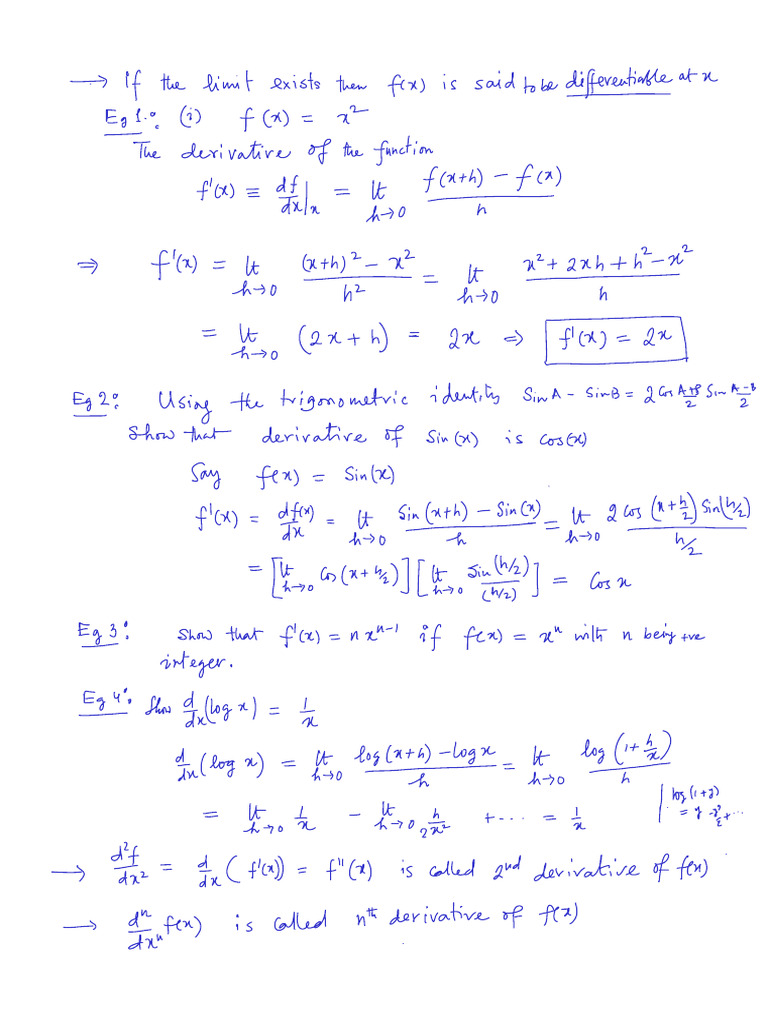 → If the limit exists then f(x) is said to be differentiable at x
Eg 1.: (i) f(x) = x²
The derivative of the function
f'(x) ≡ df/dx|ₓ = lt h→0 (f(x+h) − f(x))/h
⇒ f'(x) = lt h→0 ((x+h)² − x²)/h² = lt h→0 (x² + 2xh + h² − x²)/h
= lt h→0 (2x + h) = 2x ⇒ f'(x) = 2x
Eg 2: Using the trigonometric identity SinA − SinB = 2 Cos (A+B)/2 Sin (A−B)/2
Show that derivative of Sin(x) is Cos(x)
Say f(x) = Sin(x)
f'(x) = df(x)/dx = lt h→0 (Sin(x+h) − Sin(x))/h = lt h→0 (2 Cos(x+h/2) Sin(h/2))/(h/2)
= [lt h→0 Cos(x+h/2)] [lt h→0 Sin(h/2)/(h/2)] = Cos x
Eg 3: Show that f'(x) = n xⁿ⁻¹ if f(x) = xⁿ with n being +ve
integer.
Eg 4: Show d/dx (log x) = 1/x
d/dx (log x) = lt h→0 (log(x+h) − log x)/h = lt h→0 log(1 + h/x)/h
= lt h→0 1/x − lt h→0 h/2x² + ··· = 1/x | log(1+y)
= y − y²/2 + ···
→ d²f/dx² = d/dx (f'(x)) = f''(x) is called 2nd derivative of f(x)
→ dⁿ/dxⁿ f(x) is called nth derivative of f(x)